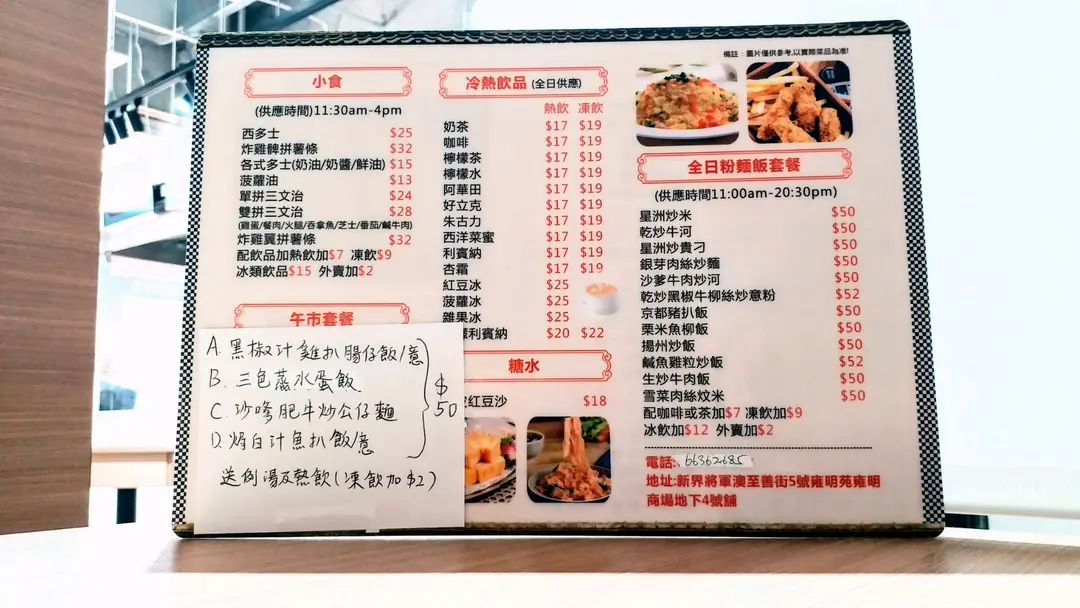 小食
(供應時間)11:30am-4pm
西多士 $25
炸雞髀拼薯條 $32
各式多士(奶油/奶醬/鮮油) $15
菠蘿油 $13
單拼三文治 $24
雙拼三文治 $28
(雞蛋/餐肉/火腿/吞拿魚/芝士/番茄/鹹牛肉)
炸雞翼拼薯條 $32
配飲品加熱飲加$7 凍飲$9
冰類飲品$15 外賣加$2
午市套餐
A. 黑椒汁雞扒腸仔飯/意
B. 三色蒸水蛋飯
C. 沙嗲肥牛炒公仔麵
D. 焗白汁魚扒飯/意
$50
送例湯及熱飲(凍飲加$2)
冷熱飲品 (全日供應)
熱飲 凍飲
奶茶 $17 $19
咖啡 $17 $19
檸檬茶 $17 $19
檸檬水 $17 $19
阿華田 $17 $19
好立克 $17 $19
朱古力 $17 $19
西洋菜蜜 $17 $19
利賓納 $17 $19
杏霜 $17 $19
紅豆冰 $25
菠蘿冰 $25
雜果冰 $25
檬利賓納 $20 $22
糖水
紅豆沙 $18
備註：圖片僅供參考,以實際菜品為准!
全日粉麵飯套餐
(供應時間11:00am-20:30pm)
星洲炒米 $50
乾炒牛河 $50
星洲炒貴刁 $50
銀芽肉絲炒麵 $50
沙爹牛肉炒河 $50
乾炒黑椒牛柳絲炒意粉 $52
京都豬扒飯 $50
栗米魚柳飯 $50
揚州炒飯 $50
鹹魚雞粒炒飯 $52
生炒牛肉飯 $50
雪菜肉絲炆米 $50
配咖啡或茶加$7 凍飲加$9
冰飲加$12 外賣加$2
電話: 66362685
地址:新界將軍澳至善街5號雍明苑雍明
商場地下4號舖